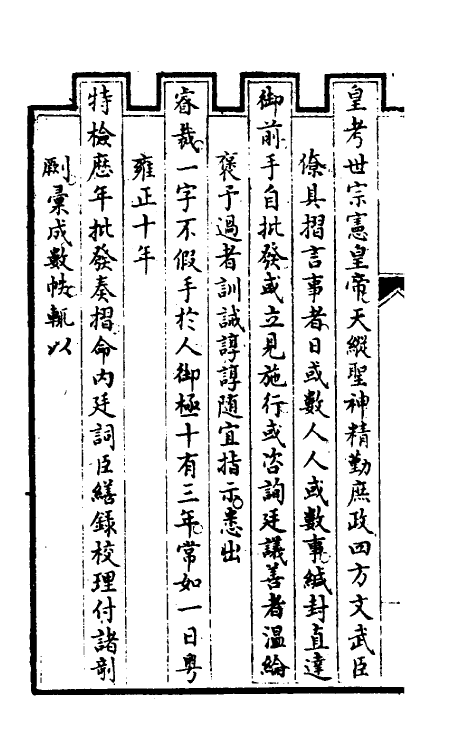 皇考世宗憲皇帝天縱聖神精勤庶政四方文武臣
僚具摺言事者日或數人人或數事緘封直達
御前手自批發或立見施行或咨詢廷議善者溫綸
褒予過者訓誡諄諄隨宜指示悉出
睿裁一字不假手於人御極十有三年常如一日粵
雍正十年
特檢歷年批發奏摺命內廷詞臣繕錄校理付諸剞
劂彙成數帙輒以